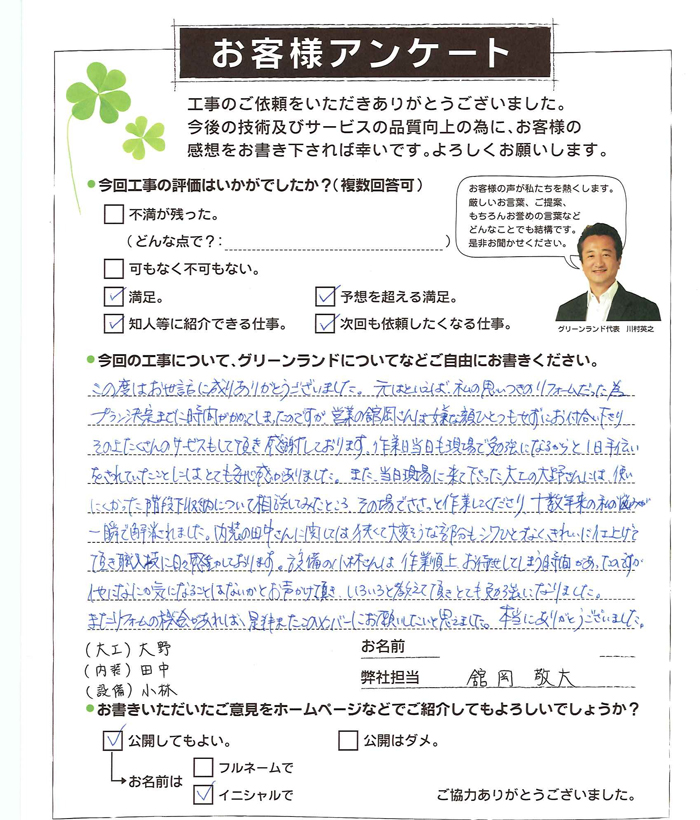 お客様アンケート
工事のご依頼をいただきありがとうございました。
今後の技術及びサービスの品質向上の為に、お客様の
感想をお書き下されば幸いです。よろしくお願いします。
今回工事の評価はいかがでしたか?(複数回答可)
不満が残った。
(どんな点で?: )
可もなく不可もない。
満足。
予想を超える満足。
知人等に紹介できる仕事。
次回も依頼したくなる仕事。
お客様の声が私たちを熱くします。
厳しいお言葉、ご提案、
もちろんお誉めの言葉など
どんなことでも結構です。
是非お聞かせください。
グリーンランド代表 川村英之
今回の工事について、グリーンランドについてなどご自由にお書きください。
この度はお世話に成りありがとうございました。元はといえば、私の思いつきのリフォームだった為
プラン決定までに時間がかかってしまったのですが、営業の舘岡さんは嫌な顔ひとつもせずにお付合い下さり
その上たくさんのサービスもして頂き感謝しております。作業日当日も現場で勉強になるからと1日手伝い
をされていたことにはとても安心感がありました。また、当日現場に来て下さった大工の大野さんには、使い
にくかった階段下収納について相談してみたところ、その場でささっと作業してくださり、十数年来の私の悩みが
一瞬で解消されました。内装の田中さんに関しては狭くて大変そうな部分もシワひとつなくきれいに仕上げて
頂き職人技に日々感動しております。設備の小林さんは、作業順上、お待せしてしまう時間があったのですが
他になにか気になることはないかとお声がけ頂き、いろいろと教えて頂きとても勉強になりました。
またリフォームの機会があれば、是非またこのメンバーにお願いしたいと思えました。本当にありがとうございました。
(大工)大野
(内装)田中
(設備)小林
お名前
弊社担当 舘岡 敬大
お書きいただいたご意見をホームページなどでご紹介してもよろしいでしょうか?
公開してもよい。
公開はダメ。
お名前は
フルネームで
イニシャルで
ご協力ありがとうございました。